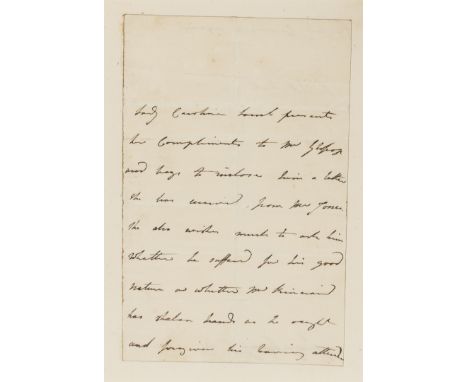 Lady Caroline Lamb presents
her Compliments to Mr Glossop
and begs to inclose him a letter
she has received from Mr Jones
she also wishes much to ask him
whether he suffered for his good
nature or whether Mr Kinnaird
has shaken hands as he ought
and forgiven his having attend